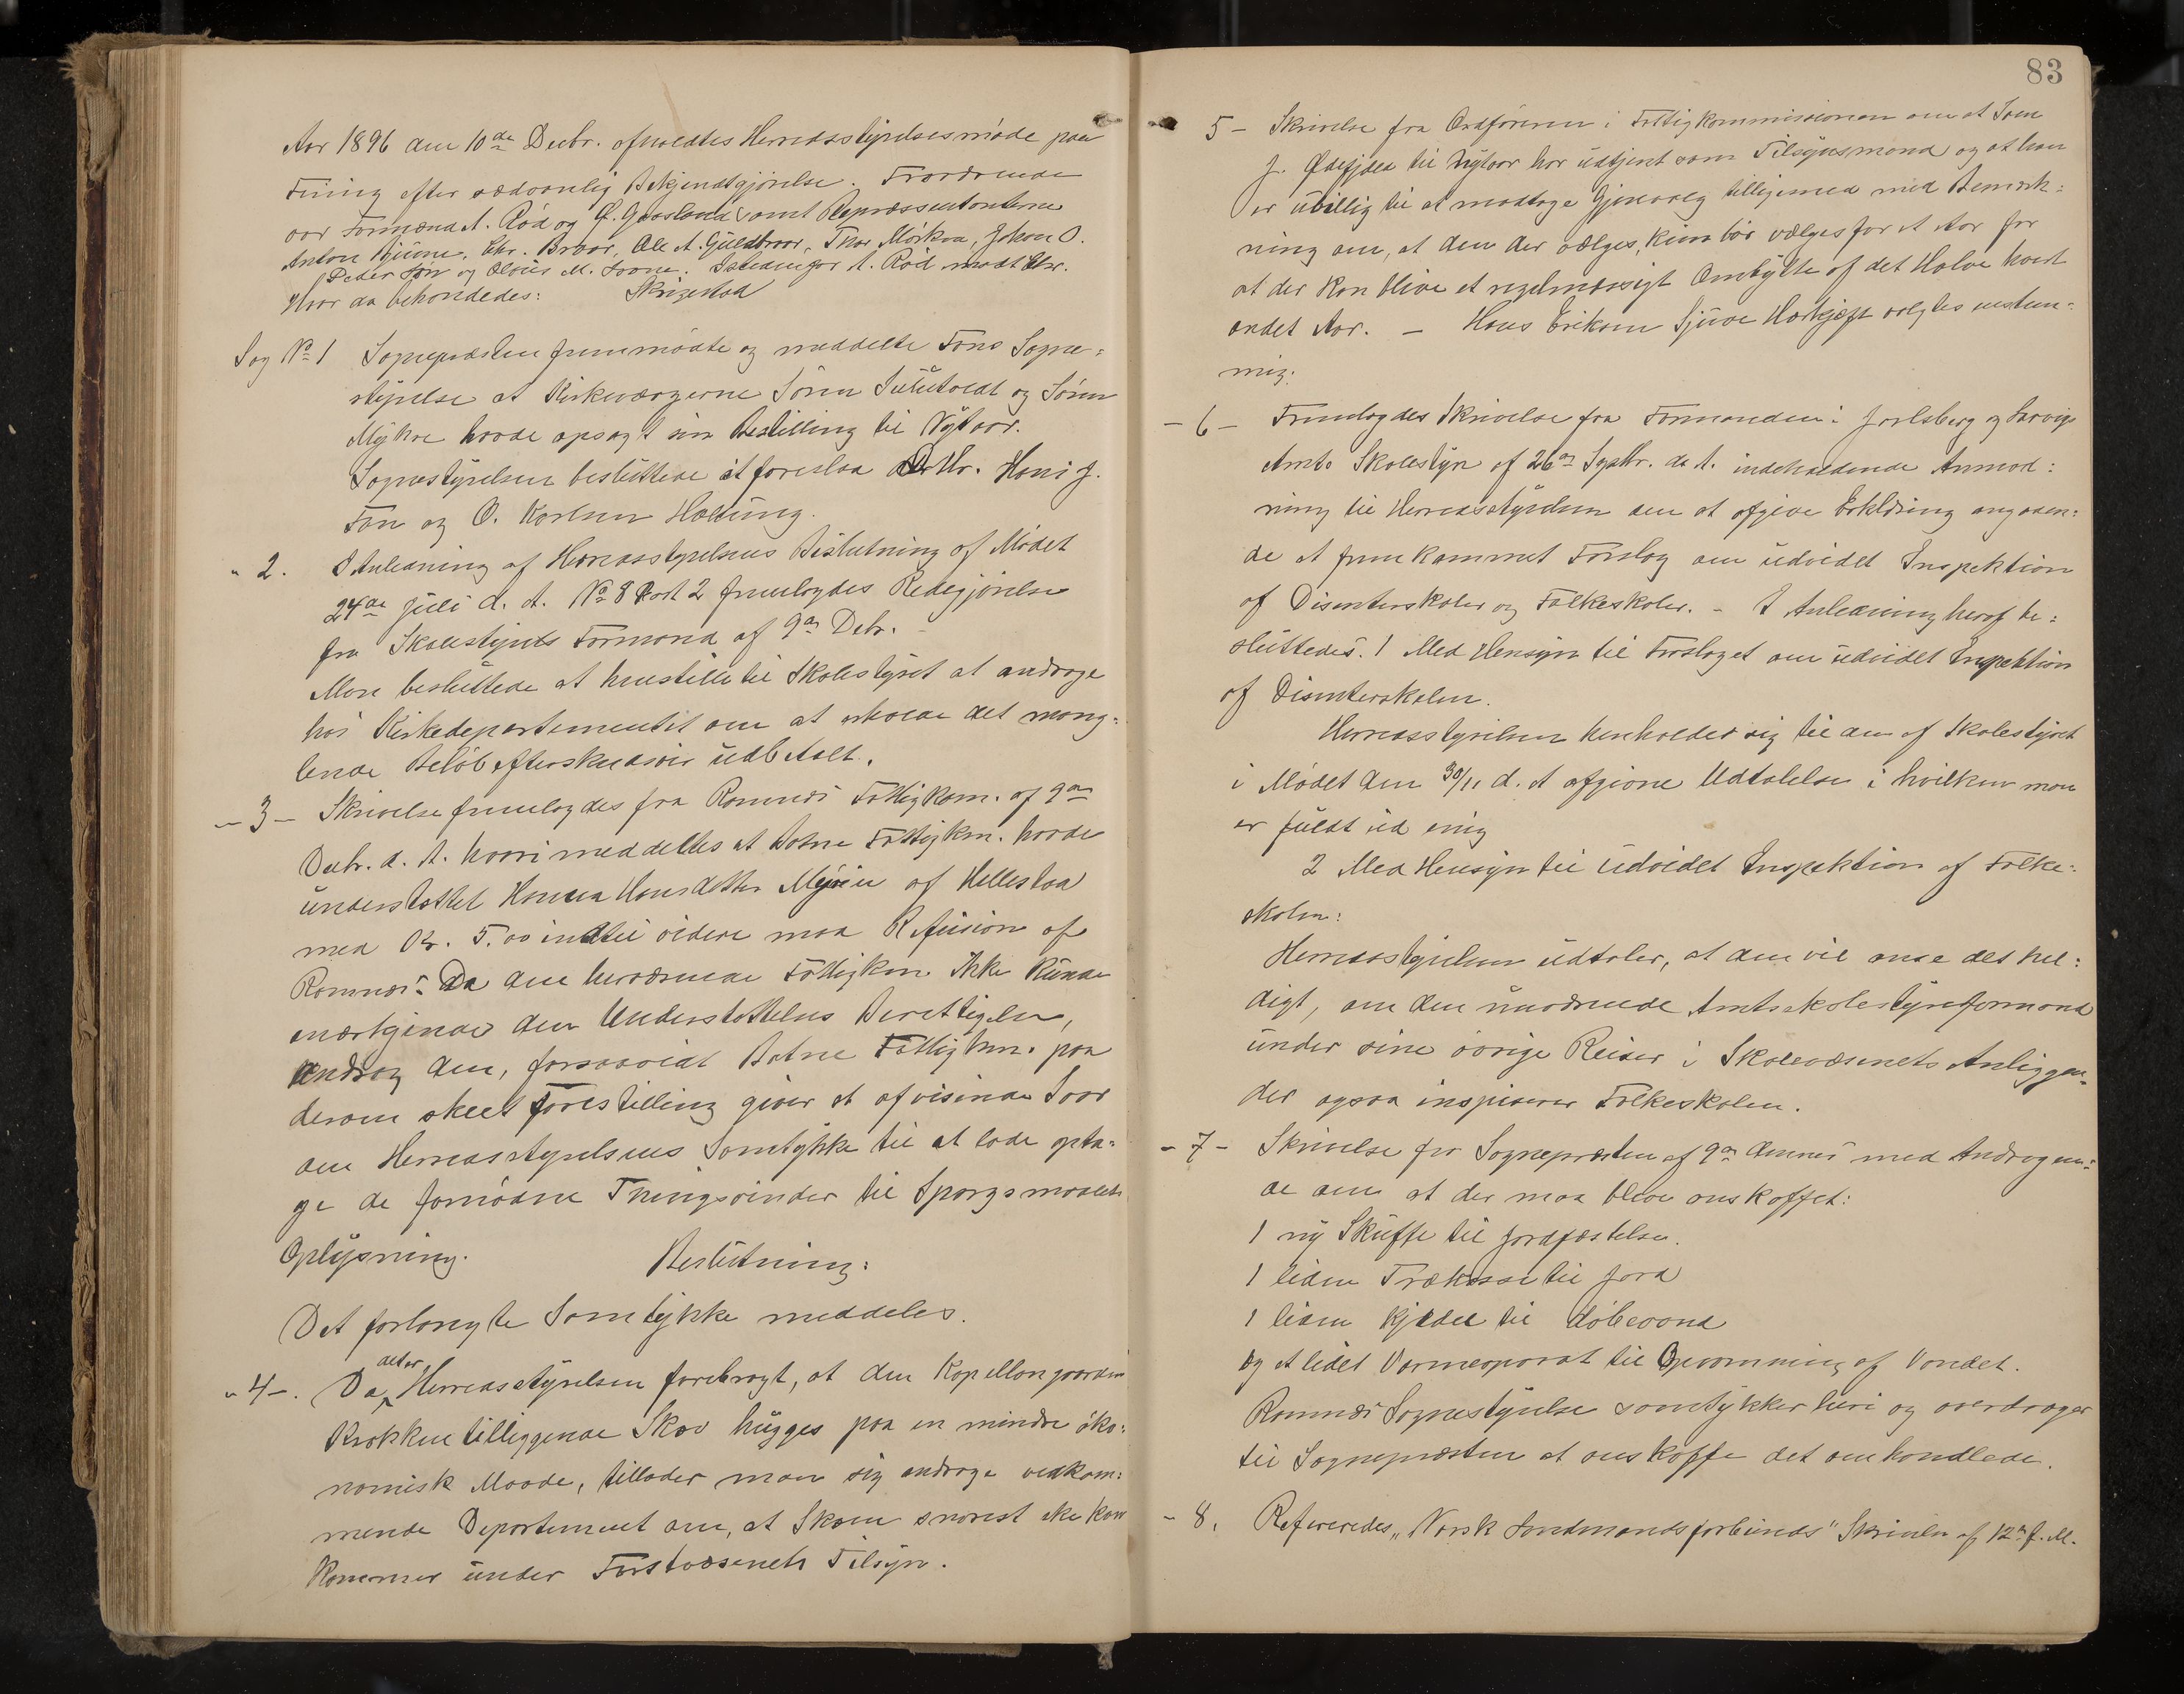 Aar 1896 den 10de Decbr. afholdtes Herredsstyrelsesmøde paa
Fiing efter sædvanlig Bekjendtgjørelse. Fraværende
var Formænd A. Rød og Ø. Gaasland samt Repræsentanterne
Anton Chr. Bravr, Ole A. Guldbrav, Thor Mørken, Johan O.
Peder Føn og M. Istedenfor A. Rød mødt Chr.
Hvor da behandledes:
Sag No 1 Sognepræsten fremmødte og meddelte Føns Sogne=
styrelse at Kirkeværgerne Søren og Søren
Mykre havde opsagt sin Bestilling til Nytaar.
Sognestyrelsen besluttede at foreslaa Hans J.
Føn og O. Karlsen Hølung.
" 2. I Anledning af Herredsstyrelsens Beslutning af Mødet
24de Juli d. A. No 8 Post 2 fremlagdes Redegjørelse
fra Skolestyrets Formand af 9de Debr.
Man besluttede at henstille til Skolestyret at andrage
hos Kirkedepartementet om at erholde det mang=
lende Beløb efterskudsvis udbetalt.
- 3 - Skrivelse fremlagdes fra Ramnæs Fattigkom. af 9de
Decbr. d. A. hvori meddeltes at Botne Fattigkm. havde
understøttet Hanna Hansdatter af Hillestad
med Kr. 5.00 indtil videre mod Refusion af
Ramnæs. Da den herværende Fattigkm. ikke kunde
anerkjende den Understøttelses Berettigelse,
androg den, forsaavidt Botne Fattigkm. paa
derom skeet Forestilling giver et afvisende Svar
om Herredsstyrelsens Samtykke til at lade opta=
ge de fornødne Thingsvidner til Spørgsmaalets
Oplysning. Beslutning:
Det forlangte Samtykke meddeles.
" 4 -. Da det er Herredsstyrelsen forebragt, at den Kapellangaarden
Krokken tilliggende Skov hugges paa en mindre øko=
nomisk Maade, tillader man sig andrage vedkom=
mende Departement om, at Skoven snarest ske kan
kommer under Forstvæsenets Tilsyn.
83
5 - Skrivelse fra Ordføreren i Fattigkommissionen om at Sven
J. Ødefjeld til Nytaar har udtjent som Tilsynsmand og at han
er uvillig til at modtage Gjenvalg tilligemed med Bemærk=
ning om, at den der vælges, kun bør vælges for et Aar for
at der kan blive et regelmæssigt Ombytte af det Halve hvert
andet Aar. - Hans Eriksen Sjuve valgtes enstem=
mig.
- 6 - Fremlagdes Skrivelse fra Formanden i Jarlsberg og Larviks
Amts Skolestyre af 26de Septbr. d. A. indeholdende Anmod=
ning til Herredsstyrelsen om at afgive Erklæring angaaen=
de et fremkommet Forslag om udvidet Inspektion
af Disenterskoler og Folkeskoler. - I Anledning heraf be=
sluttedes. 1 Med Hensyn til Forslaget om udvidet Inspektion
af Disenterskolen.
Herredsstyrelsen henholder sig til den af Skolestyret
i Mødet den 30/11 d. A afgivne Udtalelse i hvilken man
er fuldt ud enig
2 Med Hensyn til Udvidet Inspektion af Folke=
skolen:
Herredsstyrelsen udtaler, at den vil anse det hel=
digt, om den nuværende Amtsskolestyreformand
under sine øvrige Reiser i Skolevæsenets Anliggen=
der ogsaa inspiserer Folkeskolen.
- 7 - Skrivelse fra Sognepræsten af 9de dennes med Andragen=
de om at der maa blive anskaffet:
1 ny Skuffe til Jordfæstelse.
1 liden Trækasse til Jord
1 liden Kjedel til Døbevand
og et lidet Varmeaparat til Opvarmning af Vandet.
Ramnæs Sognestyrelse samtykker heri og overdrager
til Sognepræsten at anskaffe det omhandlede.
- 8. Refereredes "Norsk Landmandsforbunds" Skrivelse af 12te f. M.